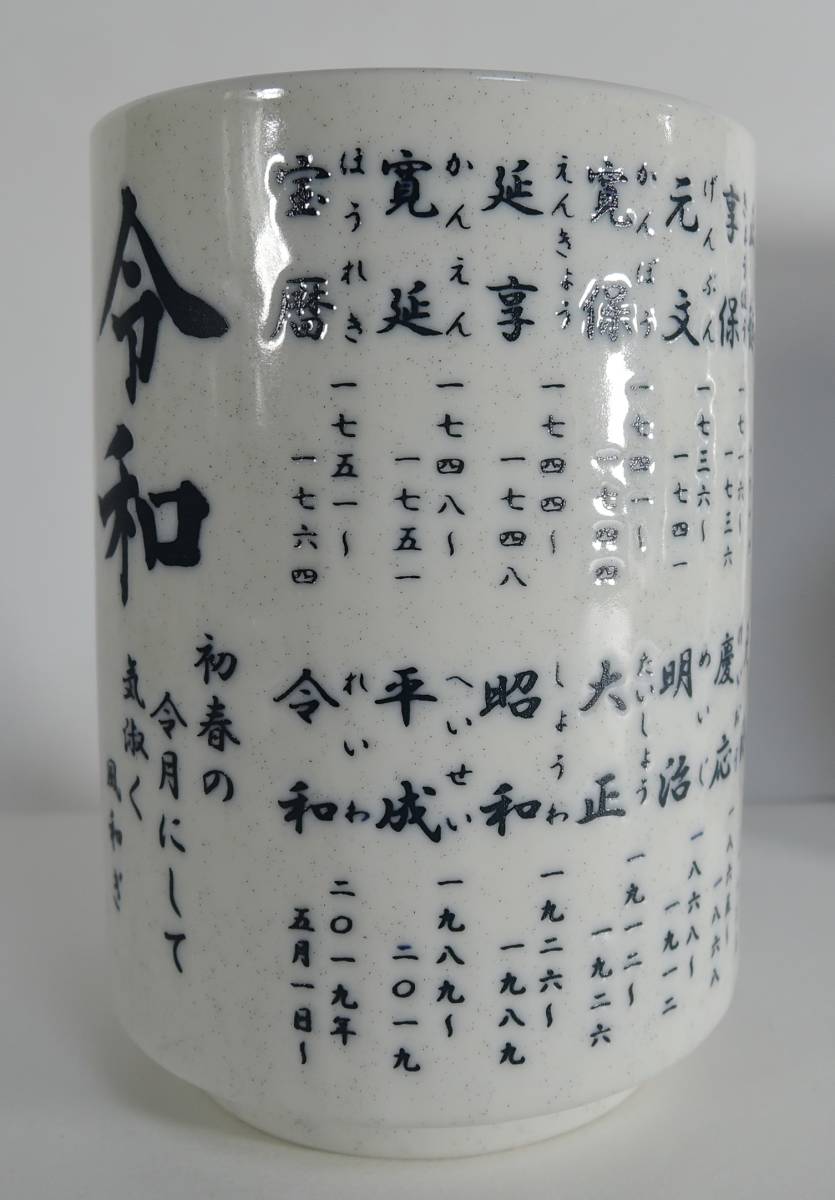 享保
一七一六〜
一七三六
げんぶん
元文
一七三六〜
一七四一
かんぽう
寛保
一七四一〜
一七四四
えんきょう
延享
一七四四〜
一七四八
かんえん
寛延
一七四八〜
一七五一
ほうれき
宝暦
一七五一〜
一七六四
慶応
一八六五〜
一八六八
めいじ
明治
一八六八〜
一九一二
たいしょう
大正
一九一二〜
一九二六
しょうわ
昭和
一九二六〜
一九八九
へいせい
平成
一九八九〜
二〇一九
れいわ
令和
二〇一九年
五月一日〜
令和
初春の
令月にして
気淑く
風和ぎ